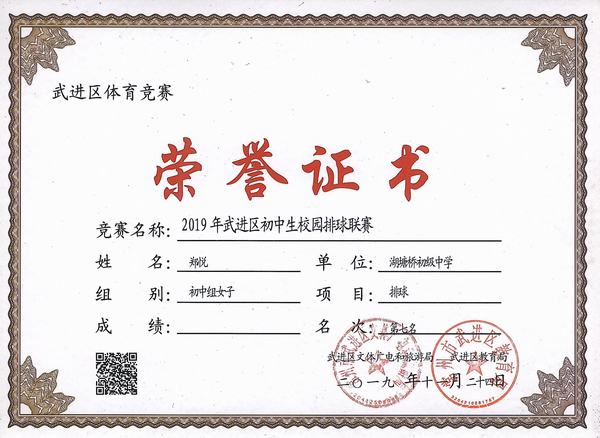 武进区体育竞赛
荣誉证书
竞赛名称：2019年武进区初中生校园排球联赛
姓名：郑悦 单位：湖塘桥初级中学
组别：初中组女子 项目：排球
成绩： 名次：第七名
武进区文体广电和旅游局 武进区教育局
二〇一九年十一月二十四日